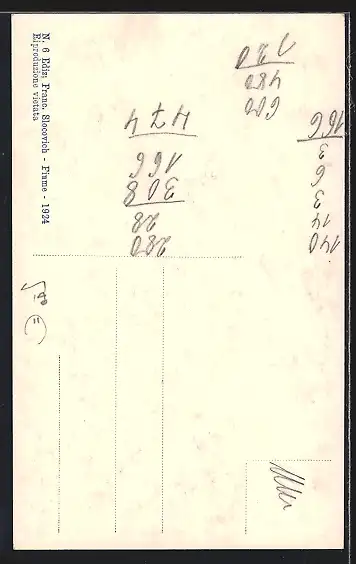 N. 6 Ediz; Franc. Slocovich - Fiume - 1924
Riproduzione vietata
140
14
3
6
3
166
600
480
120
280
28
308
166
474